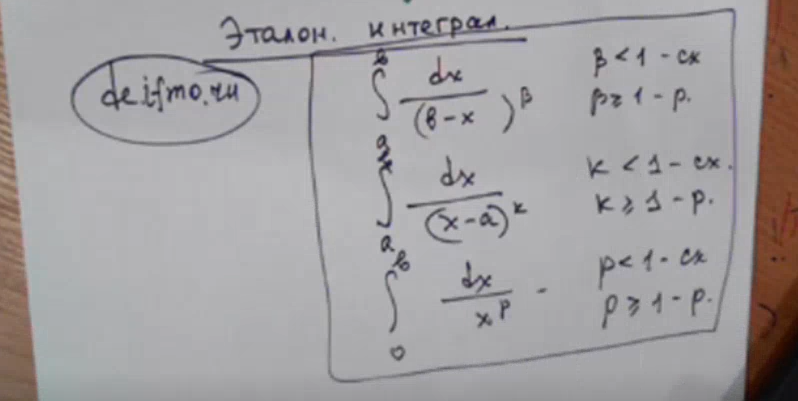 Эталон. интеграл.
de.ifmo.ru
∫_a^b dx/(b-x)^β β < 1 - сх
β ≥ 1 - р.
∫_a^b dx/(x-a)^k k < 1 - сх.
k ≥ 1 - р.
∫_0^b dx/x^p - p < 1 - сх
p ≥ 1 - р.